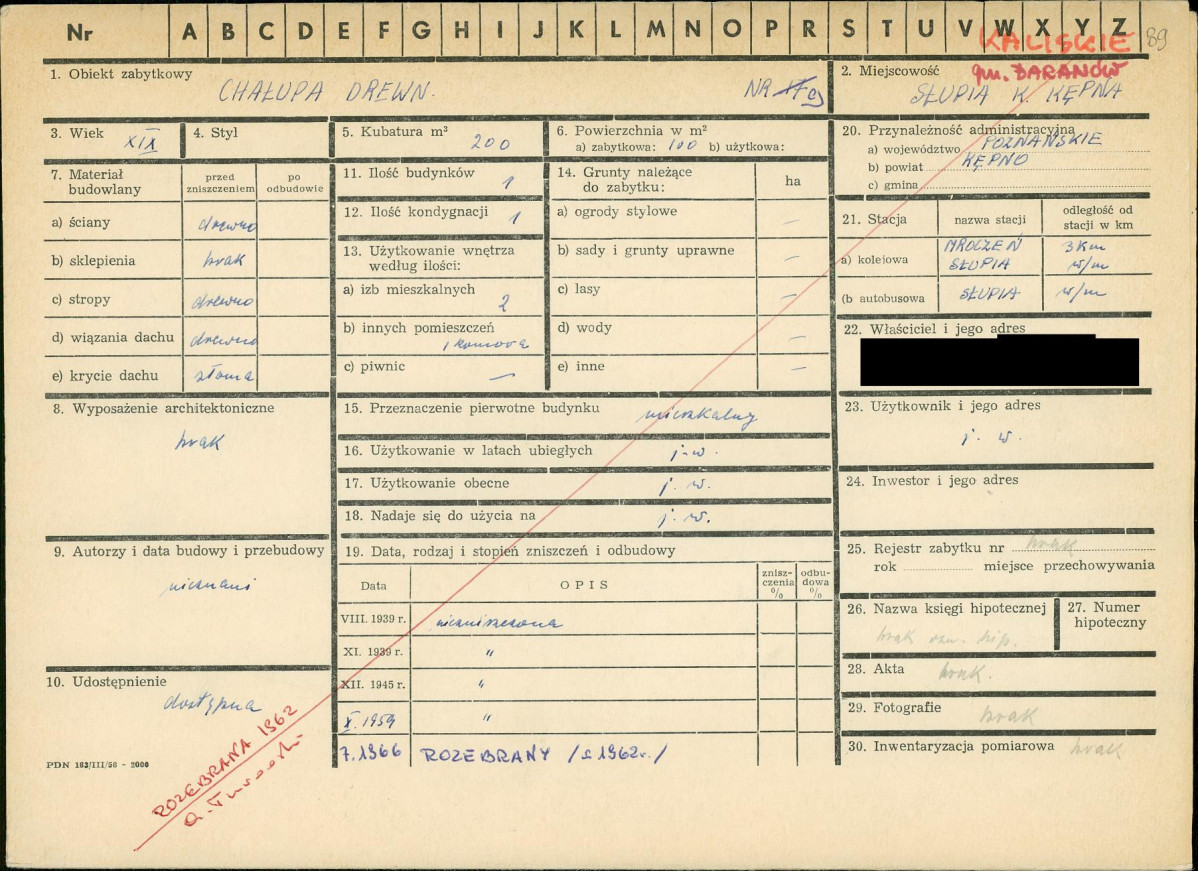 Nr A B C D E F G H I J K L M N O P R S T U V W X Y Z
KALISKIE 89
gm. BARANÓW
1. Obiekt zabytkowy
CHAŁUPA DREWN. NR
2. Miejscowość
SŁUPIA K. KĘPNA
3. Wiek XIX
4. Styl
5. Kubatura m³ 200
6. Powierzchnia w m²
a) zabytkowa: 100 b) użytkowa:
7. Materiał budowlany
przed zniszczeniem
po odbudowie
a) ściany drewno
b) sklepienia brak
c) stropy drewno
d) wiązania dachu drewno
e) krycie dachu słoma
8. Wyposażenie architektoniczne
brak
9. Autorzy i data budowy i przebudowy
nieznani
10. Udostępnienie
dostępna
11. Ilość budynków 1
12. Ilość kondygnacji 1
13. Użytkowanie wnętrza
według ilości:
a) izb mieszkalnych 2
b) innych pomieszczeń
1 komora
c) piwnic —
14. Grunty należące
do zabytku:
ha
a) ogrody stylowe —
b) sady i grunty uprawne —
c) lasy —
d) wody —
e) inne —
15. Przeznaczenie pierwotne budynku mieszkalny
16. Użytkowanie w latach ubiegłych j.w.
17. Użytkowanie obecne j. w.
18. Nadaje się do użycia na j. w.
19. Data, rodzaj i stopień zniszczeń i odbudowy
Data
OPIS
znisz-
czenia
%
odbu-
dowa
%
VIII. 1939 r. niezniszczona
XI. 1939 r. "
XII. 1945 r. "
X. 1959 "
7.1966 ROZEBRANY /w 1962r./
20. Przynależność administracyjna
a) województwo POZNAŃSKIE
b) powiat KĘPNO
c) gmina
21. Stacja
nazwa stacji
odległość od
stacji w km
a) kolejowa
MROCZEŃ 3 Km
SŁUPIA w/m
(b autobusowa SŁUPIA w/m
22. Właściciel i jego adres
23. Użytkownik i jego adres
j. w.
24. Inwestor i jego adres
25. Rejestr zabytku nr brak
rok miejsce przechowywania
26. Nazwa księgi hipotecznej
27. Numer
hipoteczny
28. Akta brak.
29. Fotografie brak
30. Inwentaryzacja pomiarowa brak
PDN 183/III/58 - 2000
ROZEBRANA 1962